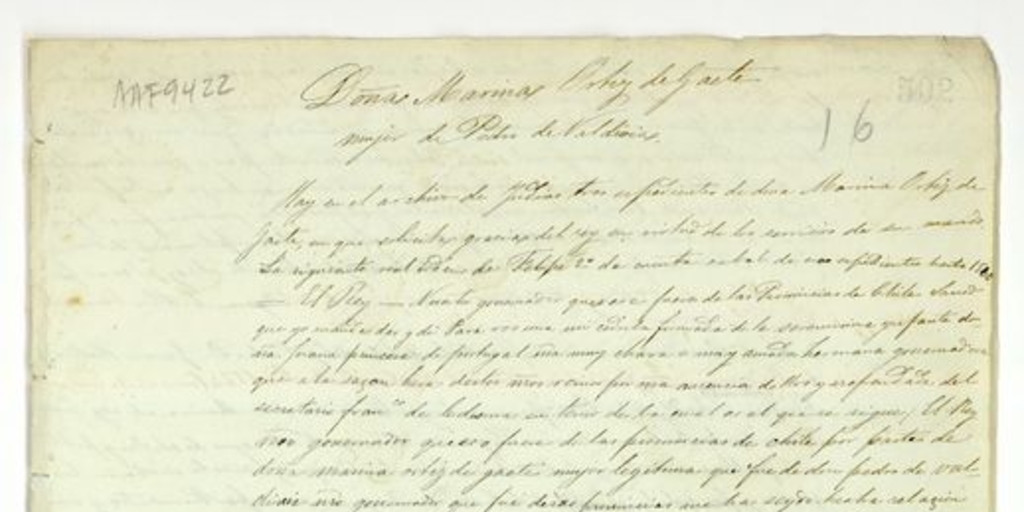 AAF9422
Doña Marina Ortiz de Gaete
502
mujer de Pedro de Valdivia.
16
Hay en el archivo de Yndias tres espedientes de doña Marina Ortiz de
Gaete, en que solicita gracias del rey en virtud de los servicios de su marido
La siguiente real de Felipe 2º da cuenta cabal de esos espedientes hasta
= El Rey — Nuestro governador que es o fuere de las Provincias de Chile Saved
que yo mandé dar y dí para vos una mi cédula firmada de la serenisima ynfanta do
ña Juana princesa de portugal mi muy chara e muy amada hermana governadora
que a la sazon hera destos nros reinos por mi ausencia dellos y refrendada del
secretario franco de ledesma su tenor de la cual es el que se sigue / El Rey
nro governador que es o fuere de las provincias de chile por parte de
doña marina ortiz de gaete mujer legitima que fue de don pedro de val-
divia nro governador que fue desas provincias me ha seydo hecha relacion